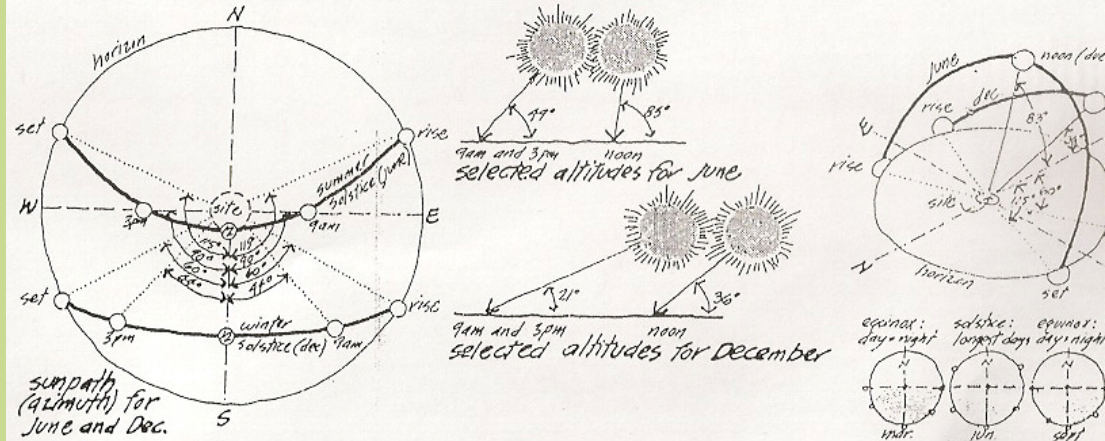 N
horizon
set
rise
summer
solstice (june)
W
site
E
3pm
n
9am
115°
118°
90°
90°
60°
60°
set
rise
winter
solstice (dec)
3pm
n
9am
S
sunpath
(azimuth) for
June and Dec.
49°
83°
9am and 3pm
noon
selected altitudes for June
21°
36°
9am and 3pm
noon
selected altitudes for December
june
noon (dec
rise
dec
83°
E
rise
site
N
horizon
set
equinox:
day=night
solstice:
longest days
equinox:
day=night
N
N
N
mar.
jun.
sept